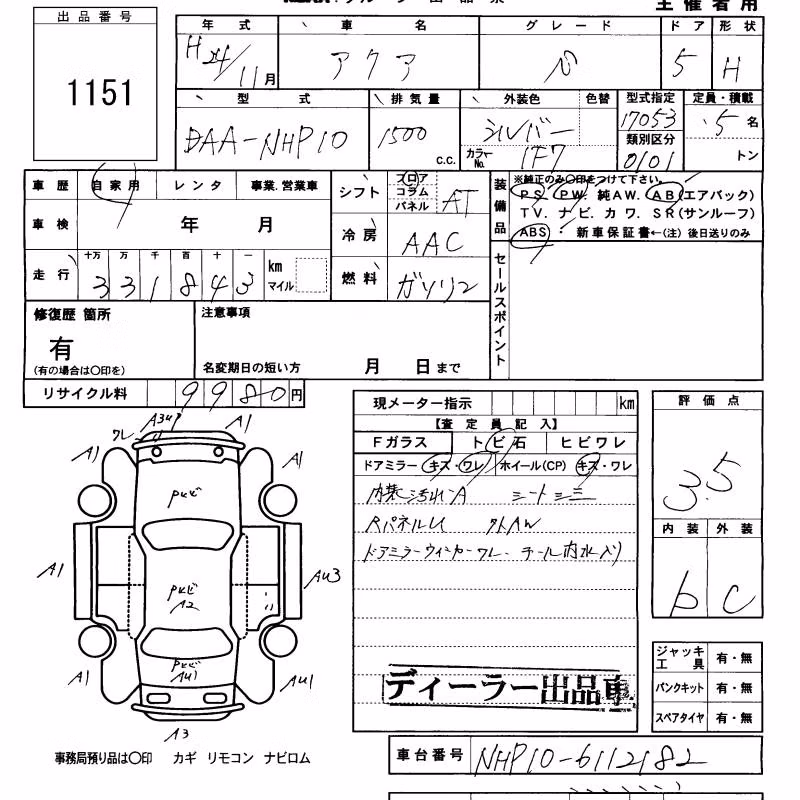 主催者用
出品番号
1151
年式 車名 グレード ドア 形状
H24/11月 アクア S 5 H
型式 排気量 外装色 色替 型式指定 定員・積載
DAA-NHP10 1500 c.c. シルバー 17053 5名
カラーNo. 1F7 類別区分 0101 トン
車歴 自家用 レンタ 事業.営業車
シフト フロア コラム パネル AT
装備品
※純正のみ〇印をつけて下さい。
PS. PW. 純AW. AB(エアバック)
TV. ナビ. カワ. SR(サンルーフ)
ABS . 新車保証書←(注)後日送りのみ
車検 年 月
冷房 AAC
走行 十万 万 千 百 十 一 km マイル
3 3 1 8 4 3
燃料 ガソリン
セールスポイント
修復歴 箇所
有
(有の場合は〇印を)
注意事項
名変期日の短い方 月 日まで
リサイクル料 9980円
現メーター指示 km
【査定員記入】
Fガラス トビ石 ヒビワレ
ドアミラー キズ・ワレ ホイール(CP) キズ・ワレ
内装汚れA シートシミ
RパネルU 外AW
ドアミラーウィンカーワレ. テール内水入り
ディーラー出品車
評価点
3.5
内装 外装
b C
ジャッキ工具 有・無
パンクキット 有・無
スペアタイヤ 有・無
ワレ A3U1 A1
A1 A1
PじじPじじ
A1 A2 AU3
A1 AU1 AU1
A3
事務局預り品は〇印 カギ リモコン ナビロム
車台番号 NHP10-6112182